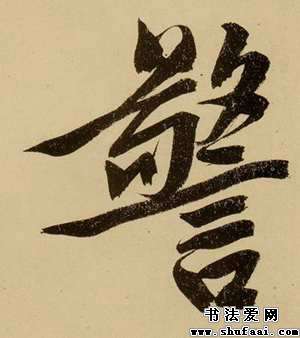 警
书法爱网
www.shufaai.com